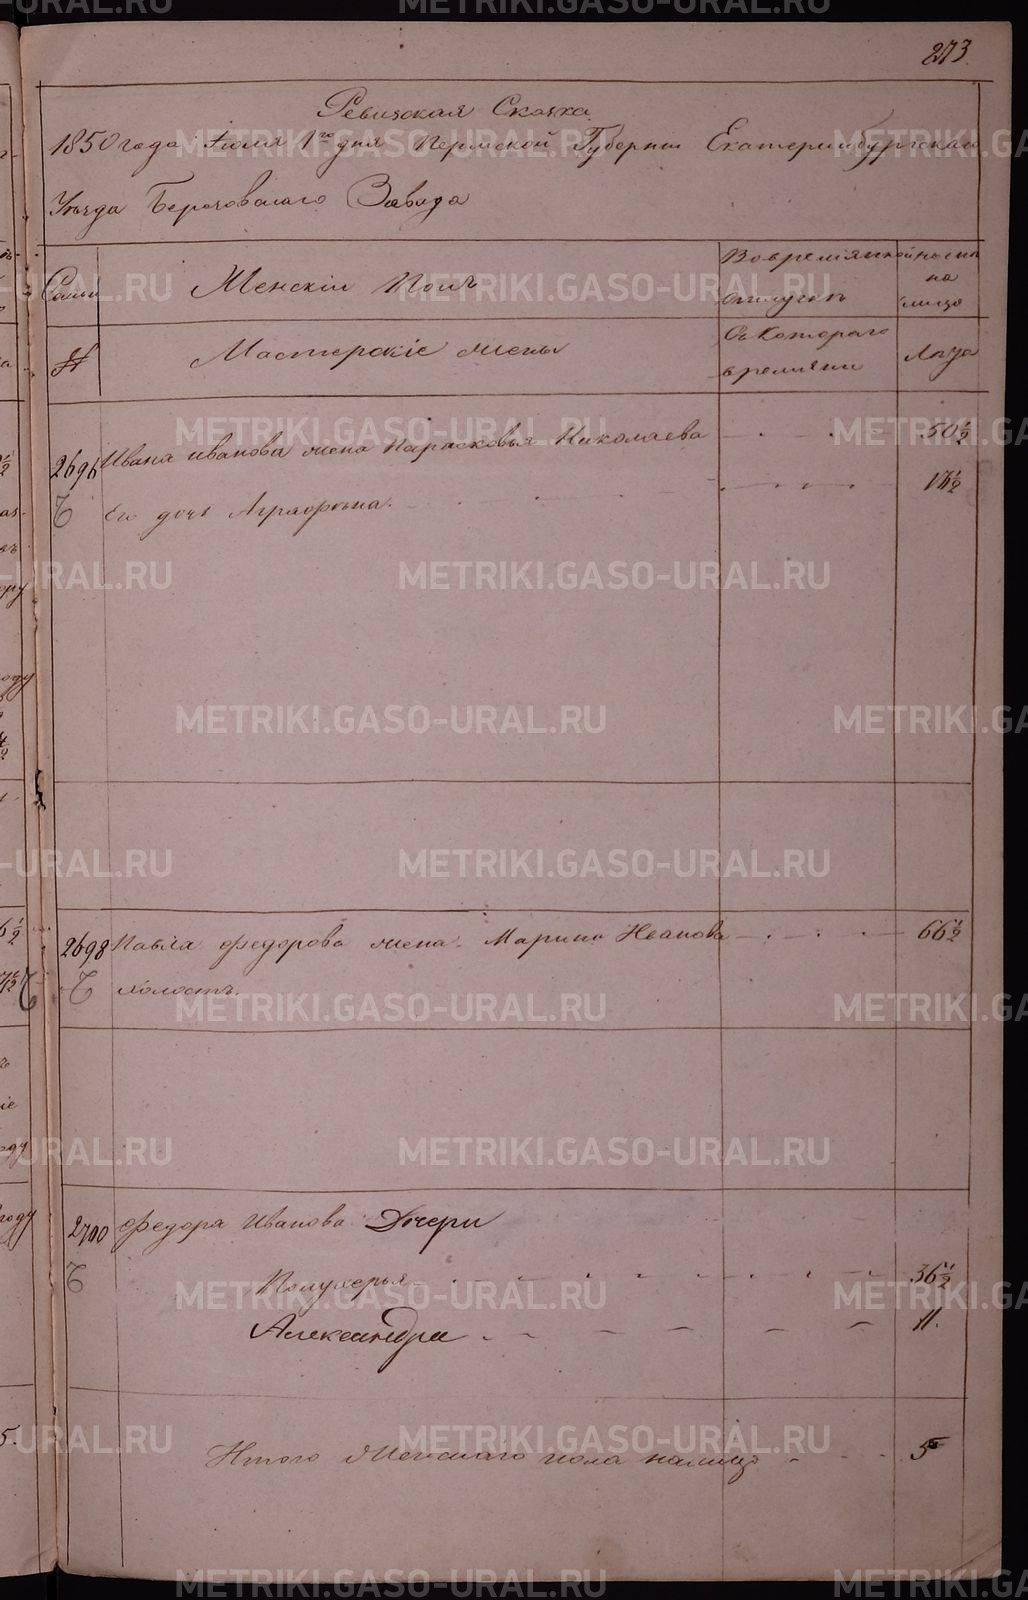 273.
Ревизская Сказка
1850 года Iюля 1го дня Пермской Губернiи Екатеринбургскаго
Уезда Березовскаго Завода
Семьи
Женскiй полъ
Во временной
отлучкѣ
на
лицо
№
Мастерскiе жены
Съ котораго
времяни
Лѣта
2696 Ивана Иванова жена Парасковья Николаева - - 50 1/2
Его дочь Аграфѣна. - - - 17 1/2
2698 Павла Федорова жена Марина Иванова - - - 66 1/2
холостъ.
2700 Федора Иванова Дочери
Полукерья - - - - - - - - - 36 1/2
Александра - - - - - - - 11.
Итого Женскаго пола налицо - - - 5
METRIKI.GASO-URAL.RU